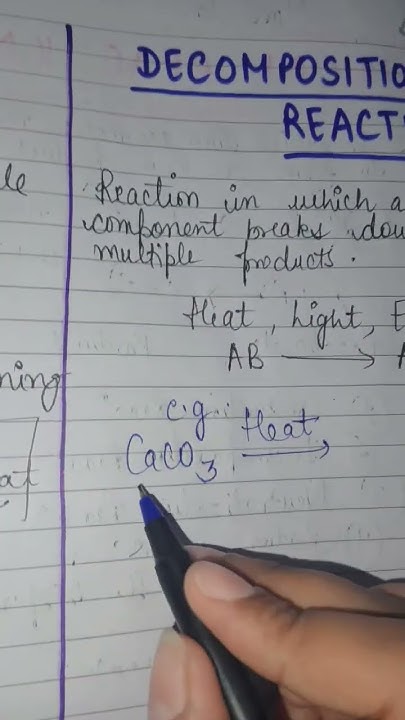 DECOMPOSITIO
REACT
Reaction in which a
component breaks dow
multiple products.
Heat, Light, E
AB → A
e.g:
CaCO3 Heat →